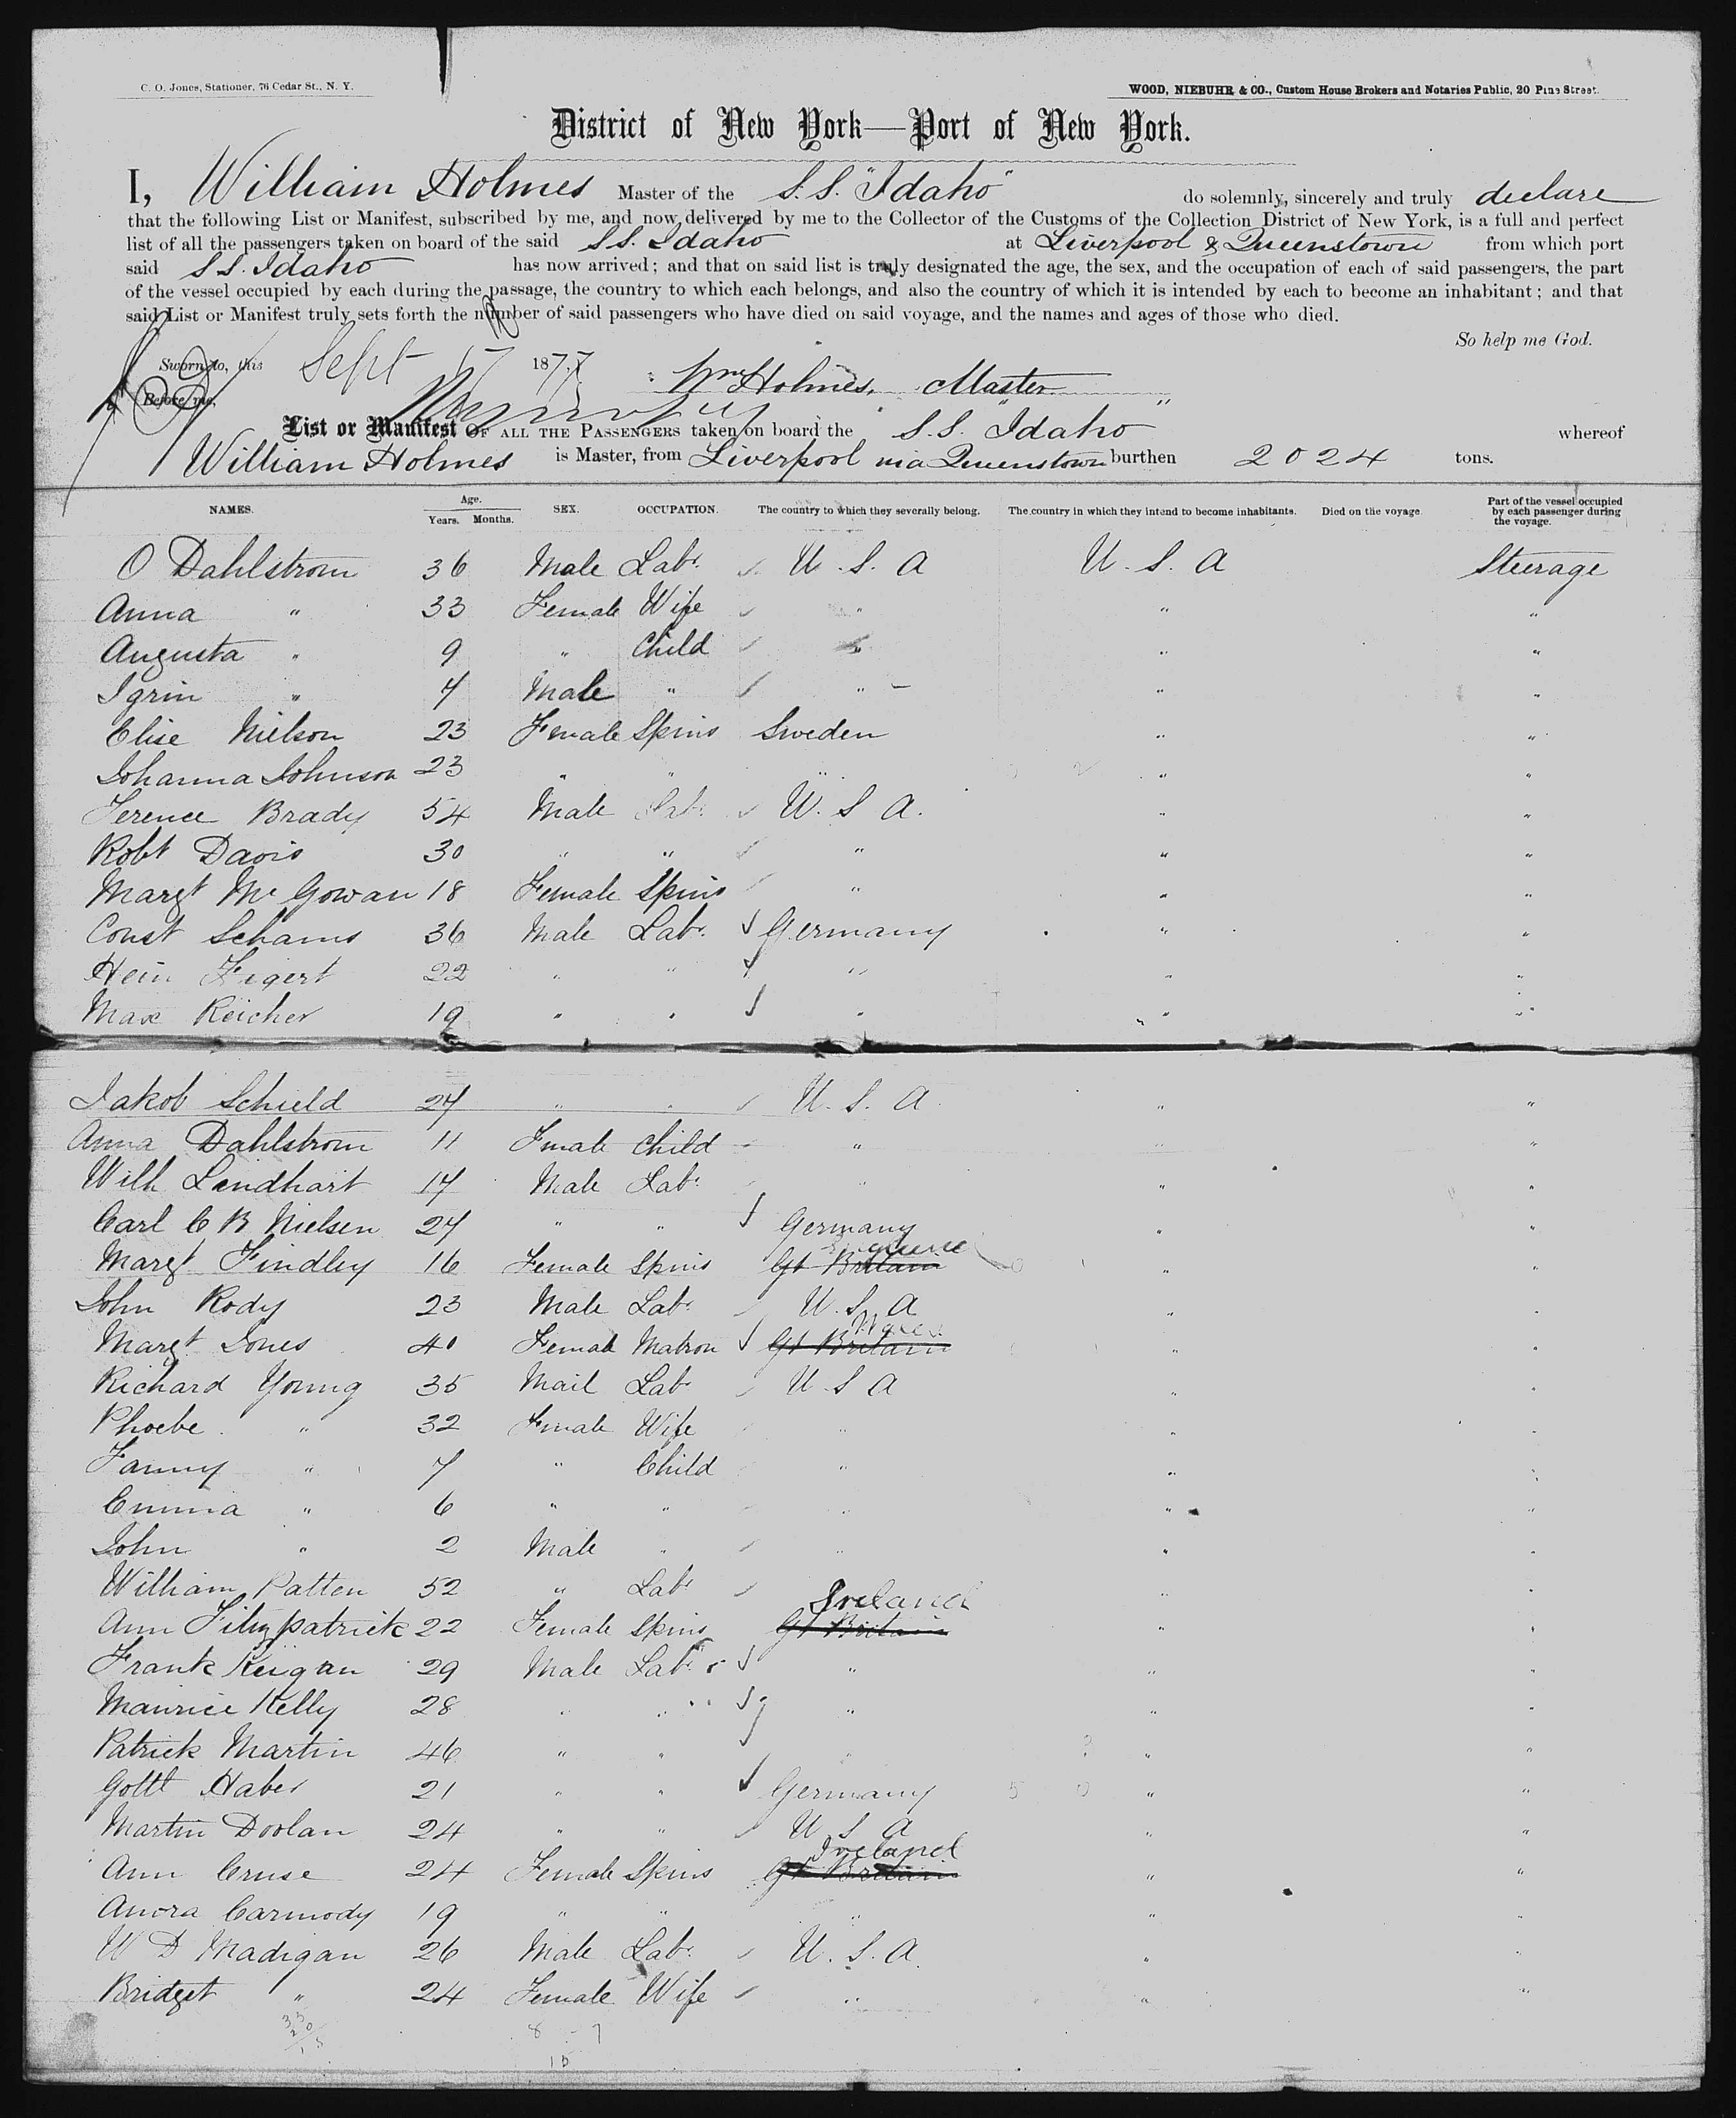 C. O. Jones, Stationer, 76 Cedar St., N. Y.
WOOD, NIEBUHR & CO., Custom House Brokers and Notaries Public, 20 Pine Street.
District of New York—Port of New York.
I, William Holmes Master of the S.S. "Idaho" do solemnly, sincerely and truly declare
that the following List or Manifest, subscribed by me, and now delivered by me to the Collector of the Customs of the Collection District of New York, is a full and perfect
list of all the passengers taken on board of the said S.S. Idaho at Liverpool & Queenstown from which port
said S.S. Idaho has now arrived; and that on said list is truly designated the age, the sex, and the occupation of each of said passengers, the part
of the vessel occupied by each during the passage, the country to which each belongs, and also the country of which it is intended by each to become an inhabitant; and that
said List or Manifest truly sets forth the number of said passengers who have died on said voyage, and the names and ages of those who died.
So help me God.
Sworn to, this Sept 17 1877 Wm Holmes, Master
Before me,
List or Manifest OF ALL THE PASSENGERS taken on board the S.S. Idaho whereof
William Holmes is Master, from Liverpool via Queenstown burthen 2024 tons.
NAMES. Age. Years. Months. SEX. OCCUPATION. The country to which they severally belong. The country in which they intend to become inhabitants. Died on the voyage. Part of the vessel occupied by each passenger during the voyage.
O Dahlstrom 36 Male Labr. U. S. A U. S. A Steerage
Anna " 33 Female Wife " " "
Augusta " 9 " Child " " "
Igrin " 4 Male " " " "
Elise Nielson 23 Female Spins Sweden " "
Johanna Johnson 23 " " " " "
Terence Brady 54 Male Labr. U. S. A. " "
Robt Davis 30 " " " " "
Margt McGowan 18 Female Spins " " "
Const Schams 36 Male Labr. Germany " "
Hein Figert 22 " " " " "
Max Reicher 19 " " " " "
Jakob Schield 24 " " U. S. A. " "
Anna Dahlstrom 11 Fmale Child " " "
Wilh Lindhart 17 Male Labr " " "
Carl C B Nielsen 24 " " Germany " "
Margt Findley 16 Female Spins Gt Britain " "
John Rody 23 Male Labr U. S. A " "
Margt Jones 40 Femal Matron Gt Britain Wales " "
Richard Young 35 Mail Labr U S A " "
Phoebe " 32 Fmale Wife " " "
Fanny " 7 " Child " " "
Emma " 6 " " " " "
John " 2 Male " " " "
William Patten 52 " Labr " "
Ann Fitzpatrick 22 Female Spins Gt Britain Ireland " "
Frank Keigan 29 Male Labr " " "
Maurice Kelly 28 " " " " "
Patrick Martin 46 " " " " "
Gottl Haber 21 " " Germany " "
Martin Doolan 24 " " U S A " "
Ann Cruse 24 Female Spins Gt Britain Ireland " "
Anora Carmody 19 " " " " "
W D Madigan 26 Male Labr. U. S. A. " "
Bridget " 24 Female Wife " " "